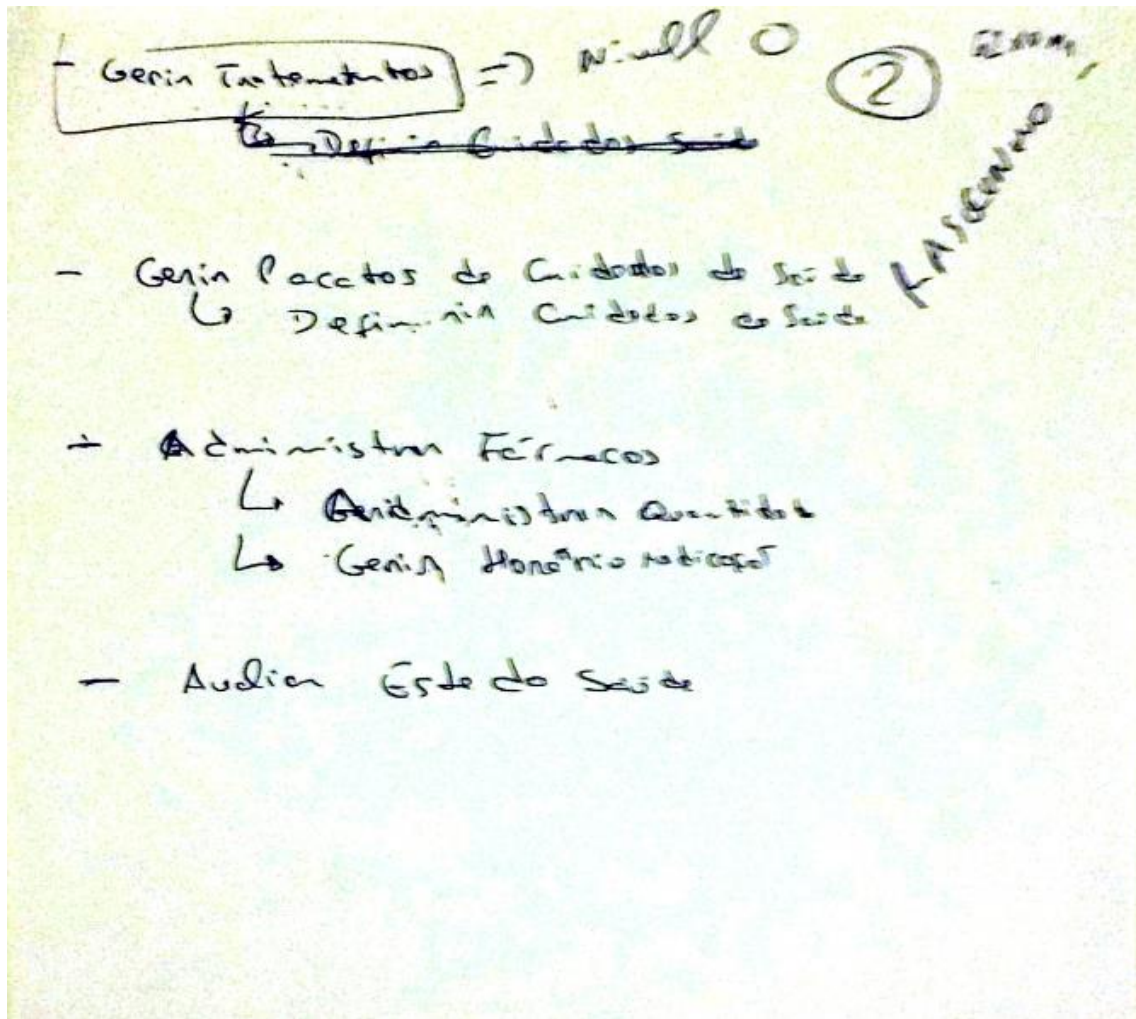 - Gerir Tratamentos => Nivel 0 2
↳ Definir Cuidados Saúde
- Gerir Pacotes de Cuidados de Saúde
↳ Definir Cuidados de Saúde
- Administrar Fármacos
↳ Administrar Quantidade
↳ Gerir Horário Medicação
- Avaliar Estado Saúde